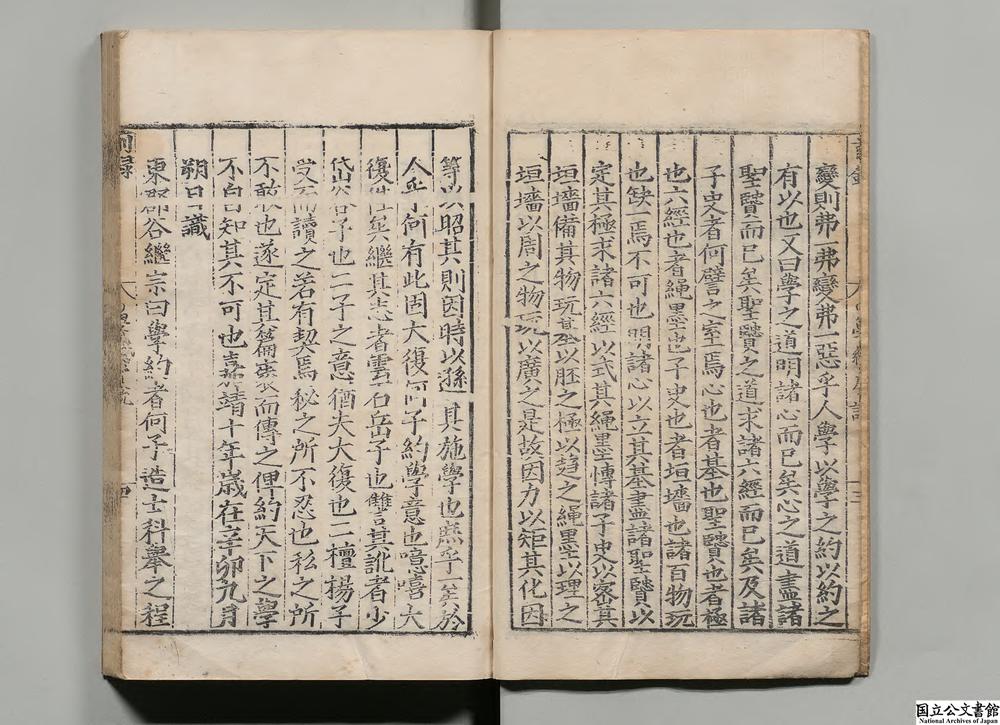 變則弗一弗變弗一惡乎人學以學之約以約之
有以也又曰學之道明諸心而已矣心之道盡諸
聖賢而已矣聖賢之道求諸六經而已矣及諸
子史者何譬之室焉心也者基也聖賢也者極
也六經也者繩墨也子史也者垣墻也諸百物玩
也缺一焉不可也明諸心以立其基盡諸聖賢以
定其極求諸六經以式其繩墨博諸子史以密其
垣墻備其物玩基以胚之極以趍之繩墨以理之
垣墻以周之物玩以廣之是故因力以矩其化因
等以昭其則因時以孫其施學也庶乎一矣於
今乎何有此固大復何子約學意也噫嘻大
復矣繼其志者雲石岳子也讐其訛者少
岱谷子也二子之意猶夫大復也二檀楊子
受而讀之若有契焉秘之所不忍也私之所
不敢也遂定其篇袠而傳之俾約天下之學
不自知其不可也嘉靖十年歲在辛卯九月
朔日識
東郡谷繼宗曰學約者何子造士科舉之程
四
國立公文書館
National Archives of Japan